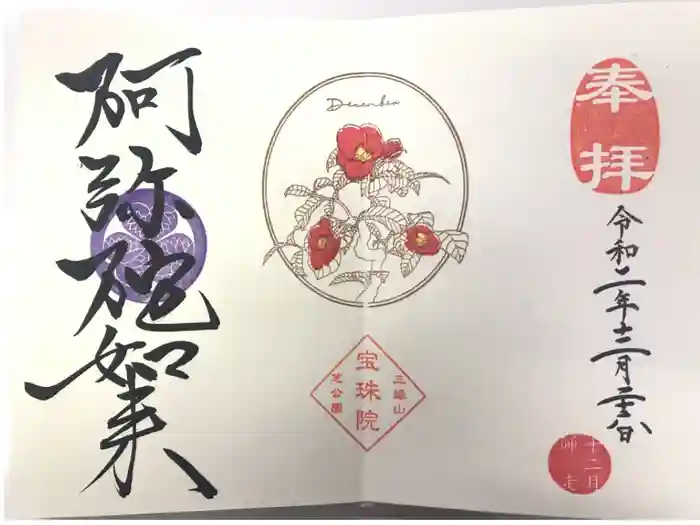 奉拝
令和二年十二月二十五日
十二月
師走
December
宝珠院
三緑山
芝公園
阿弥陀如来